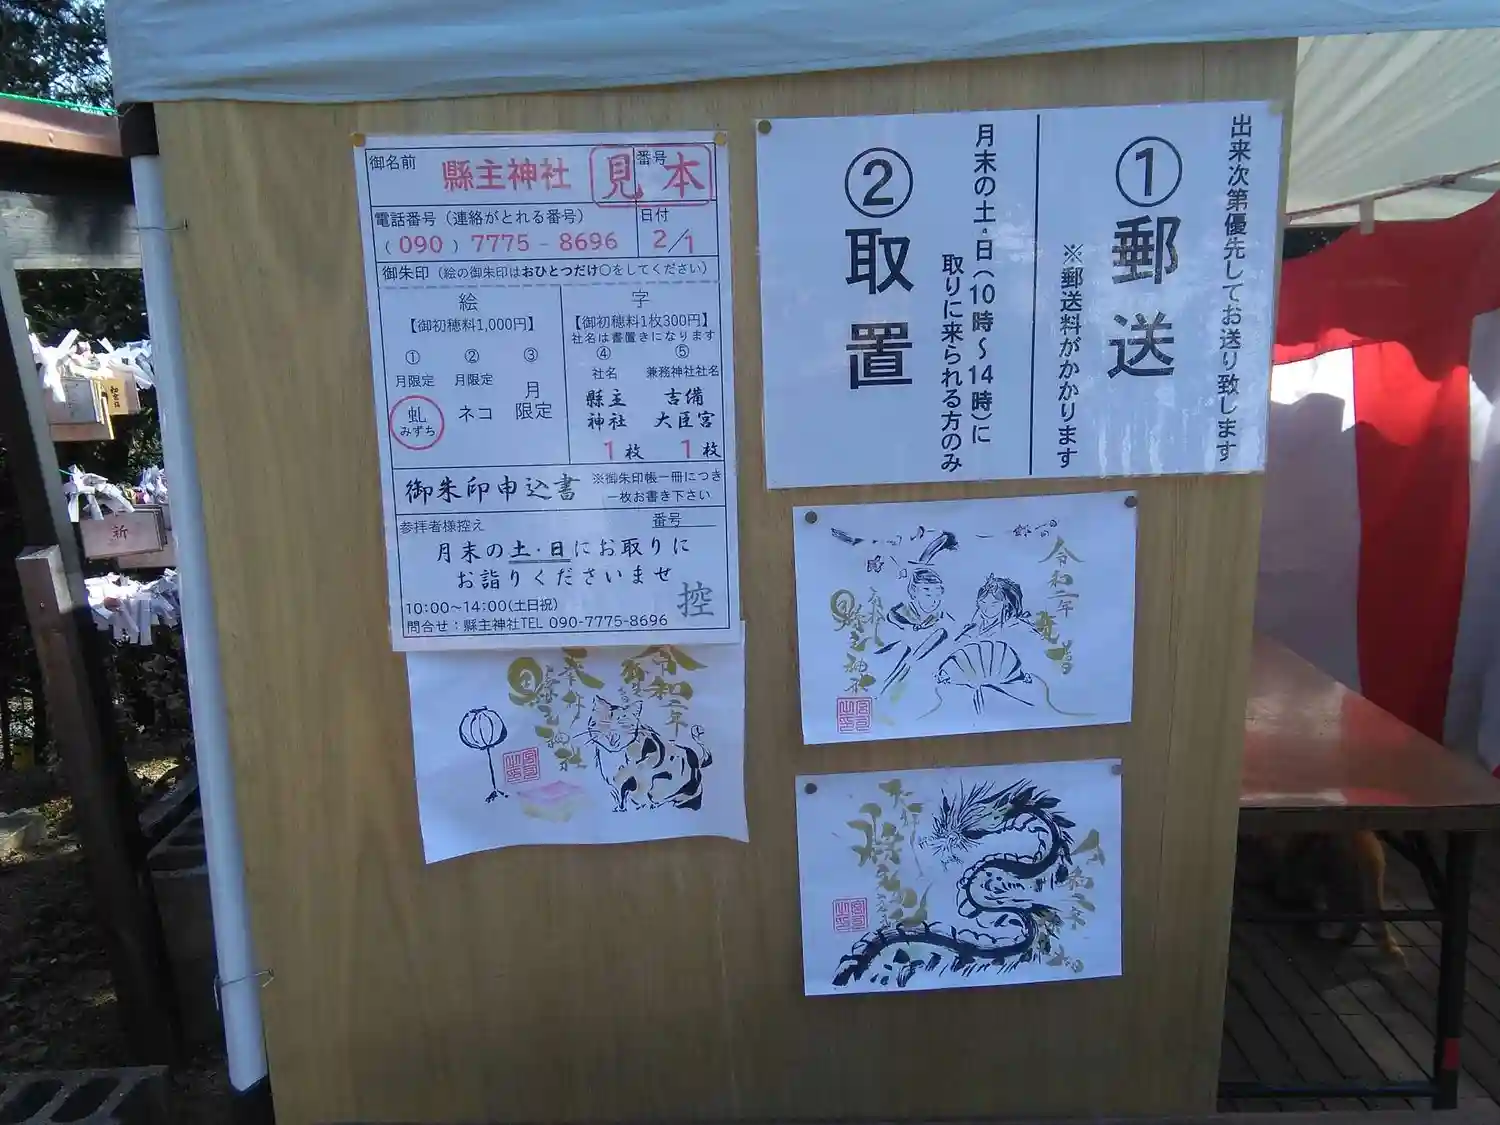 御名前
縣主神社
番号
見本
電話番号（連絡がとれる番号）
日付
（090）7775-8696
2/1
御朱印（絵の御朱印はおひとつだけ○をしてください）
絵
【御初穂料1,000円】
① ② ③
月限定 月限定 月限定
虬 ネコ
みずち
字
【御初穂料1枚300円】
社名は書置きになります
④ ⑤
社名 兼務神社社名
縣主神社 吉備大臣宮
1枚 1枚
御朱印申込書
※御朱印帳一冊につき
一枚お書き下さい
参拝者様控え
番号
月末の土・日にお取りに
お詣りくださいませ
控
10:00～14:00(土日祝)
問合せ：縣主神社TEL 090-7775-8696
出来次第優先してお送り致します
①郵送
※郵送料がかかります
月末の土・日（10時～14時）に
取りに来られる方のみ
②取置
令和二年
令和二年